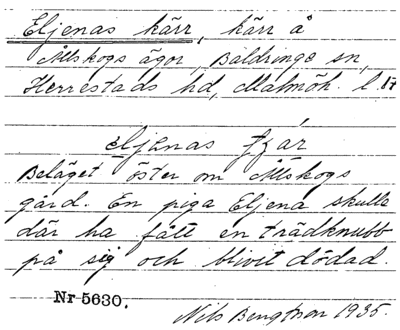 Eljenas kärr, kärr å
Allskogs ägor, Baldringe sn,
Herrestads hd, Malmöh. l.
eljenas
Beläget öster om Allskogs
gård. En piga Eljena skulle
där ha fått en trädknubb
på sig och blivit dödad.
Nr 5630.
Nils Bengtson 1935.